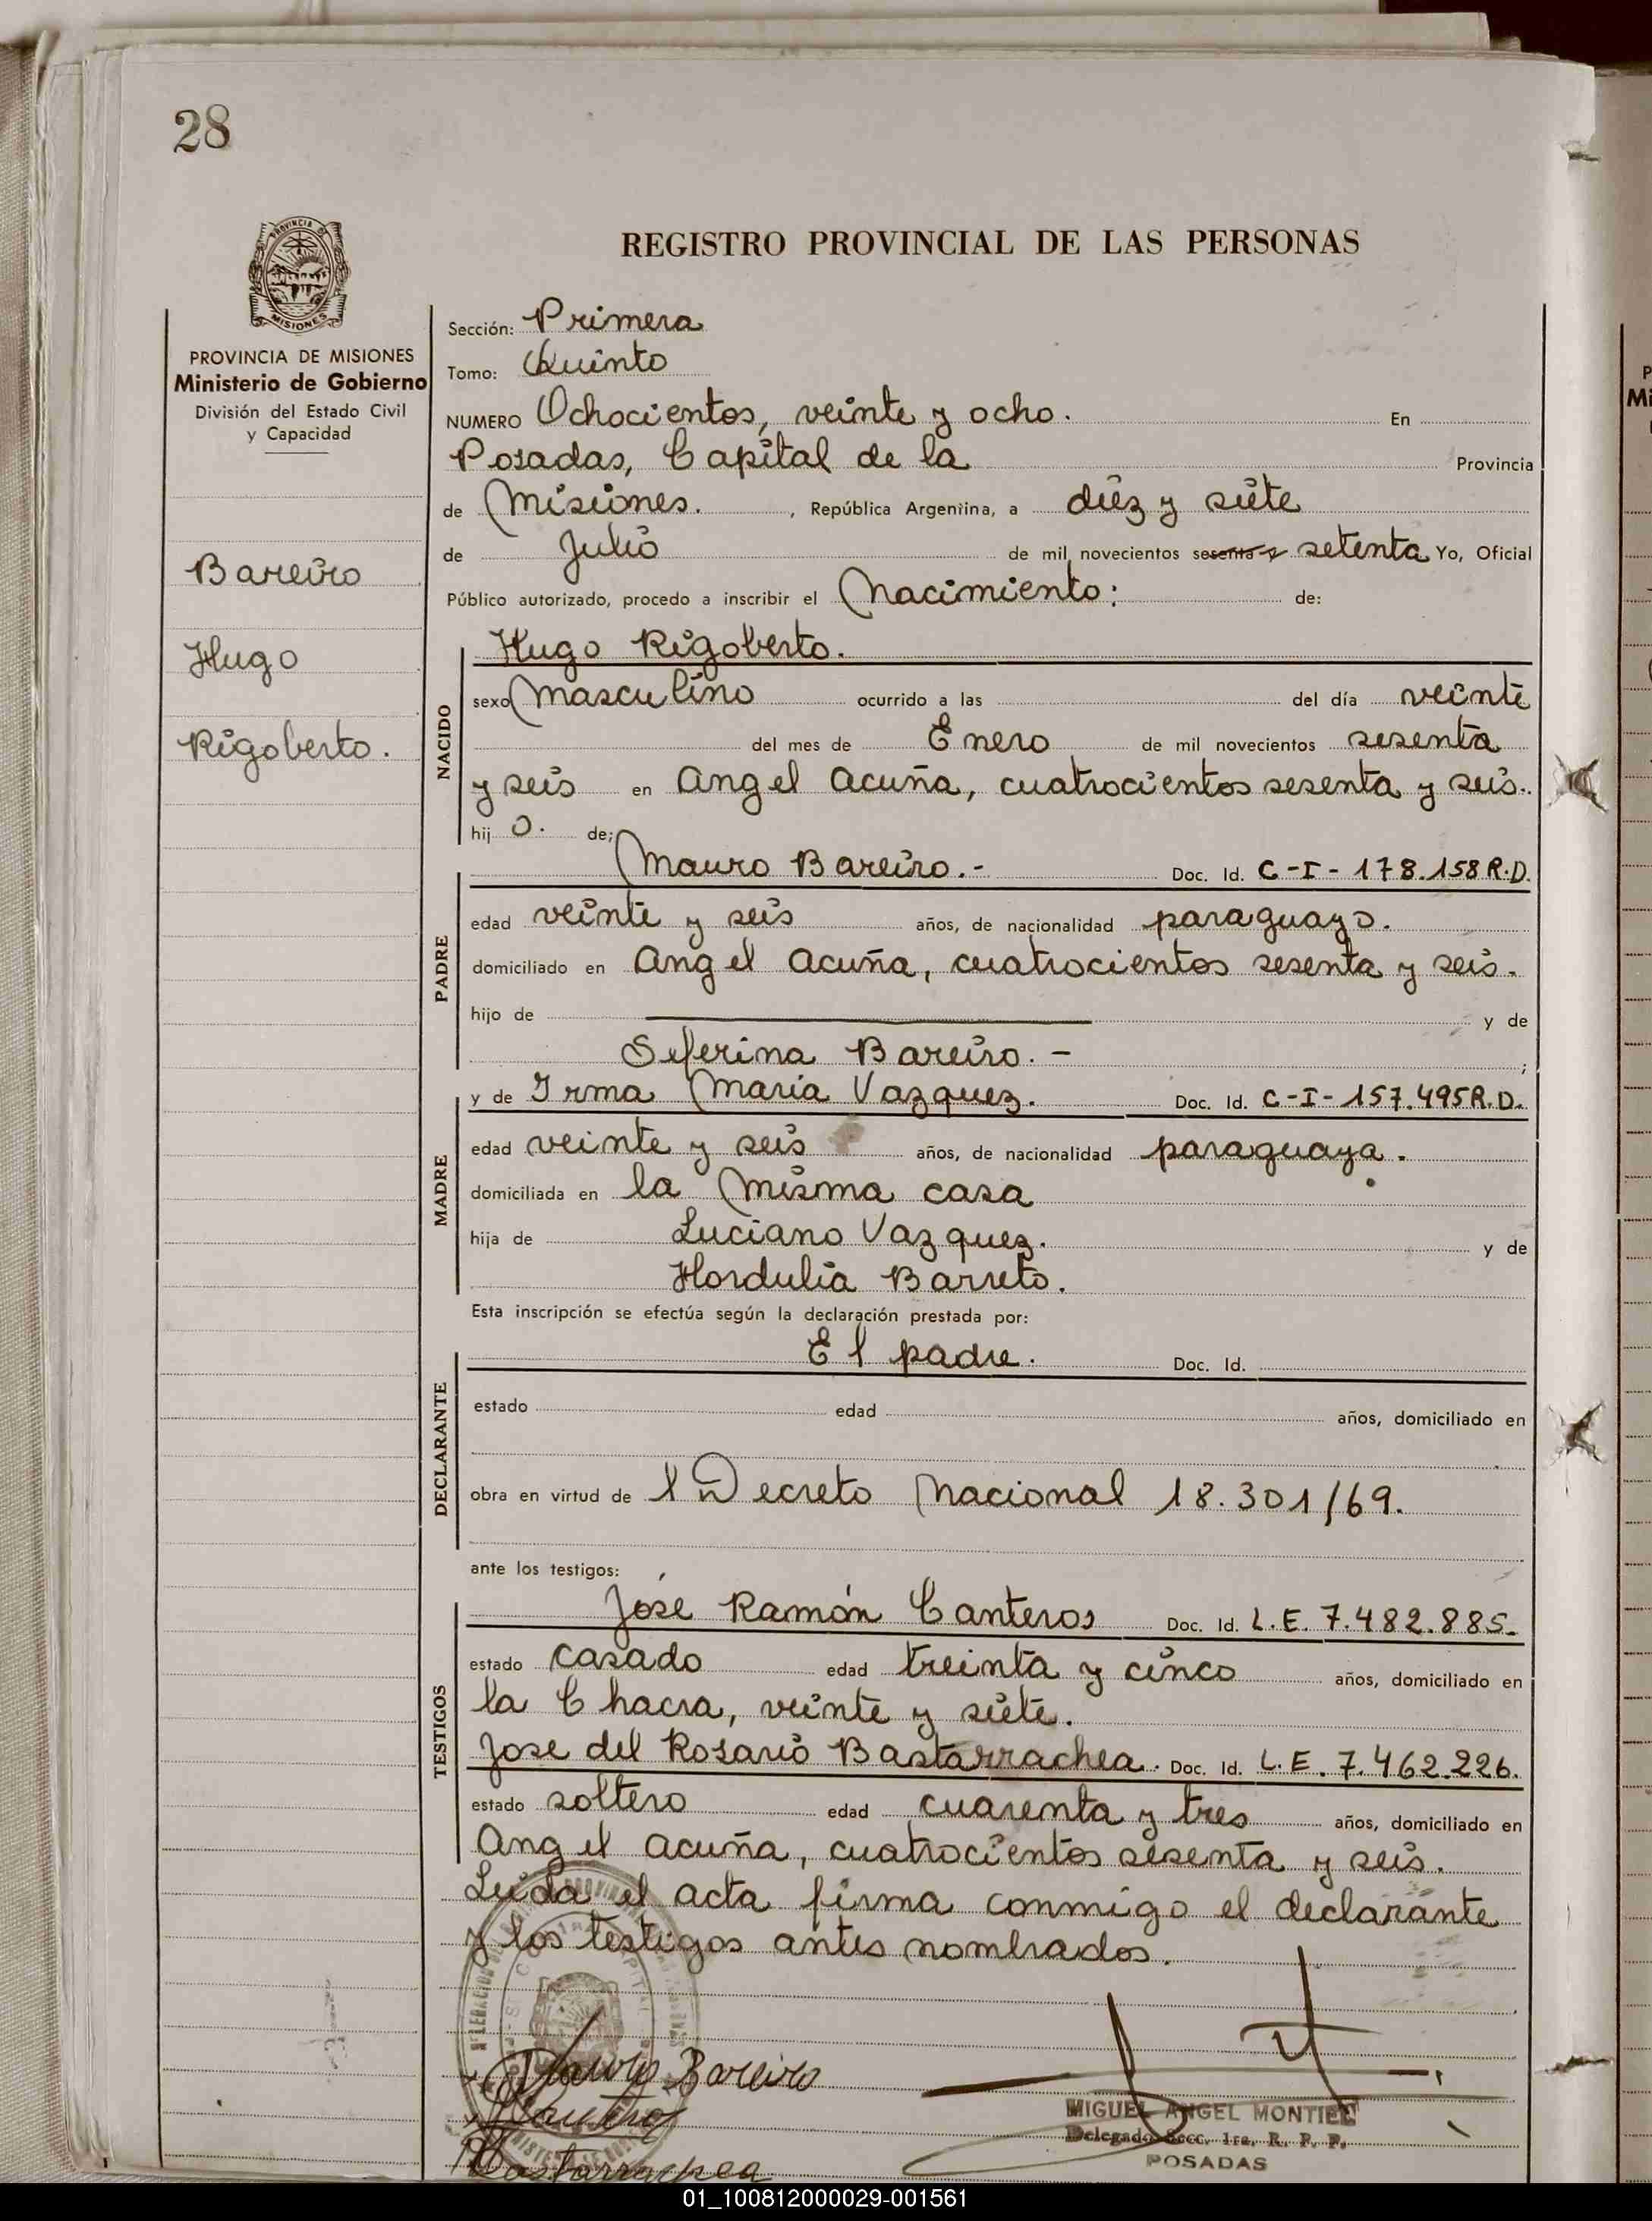 28
PROVINCIA DE
MISIONES
REGISTRO PROVINCIAL DE LAS PERSONAS
PROVINCIA DE MISIONES
Ministerio de Gobierno
División del Estado Civil
y Capacidad
Bareiro
Hugo
Rigoberto.
Sección: Primera
Tomo: Quinto
NUMERO Ochocientos, veinte y ocho. En
Posadas, Capital de la Provincia
de Misiones. , República Argentina, a diez y siete
de Julio de mil novecientos sesenta y setenta Yo, Oficial
Público autorizado, procedo a inscribir el Nacimiento: de:
NACIDO
Hugo Rigoberto.
sexo Masculino ocurrido a las del día veinte
del mes de Enero de mil novecientos sesenta
y seis en Angel Acuña, cuatrocientos sesenta y seis.
hij o. de;
PADRE
Mauro Bareiro.- Doc. Id. C-I- 178.158 R.D.
edad veinte y seis años, de nacionalidad paraguayo.
domiciliado en Angel Acuña, cuatrocientos sesenta y seis.
hijo de y de
Seferina Bareiro. - ;
MADRE
y de Irma Maria Vazquez. Doc. Id. C-I- 157.495 R.D.
edad veinte y seis años, de nacionalidad paraguaya.
domiciliada en la misma casa
hija de Luciano Vazquez. y de
Hordulia Barreto.
Esta inscripción se efectúa según la declaración prestada por:
DECLARANTE
El padre. Doc. Id.
estado edad años, domiciliado en
obra en virtud de l Decreto Nacional 18.301/69.
ante los testigos:
TESTIGOS
José Ramón Canteros Doc. Id. L.E. 7.482.885.
estado casado edad treinta y cinco años, domiciliado en
la Chacra, veinte y siete.
Jose del Rosario Bastarrachea. Doc. Id. L.E. 7.462.226.
estado soltero edad cuarenta y tres años, domiciliado en
Angel Acuña, cuatrocientos sesenta y seis.
Leida el acta firma conmigo el declarante
y los testigos antes nombrados.
Mauro Bareiro
MIGUEL ANGEL MONTIEL
Delegado Secc. 1ra. R. P. P.
POSADAS
01_100812000029-001561